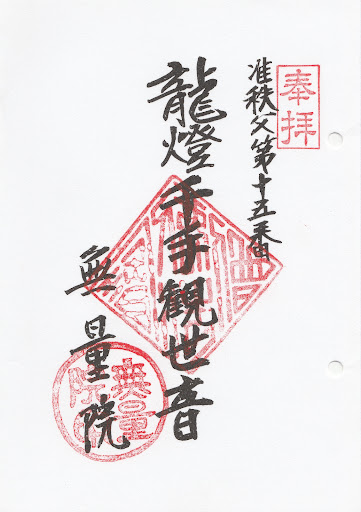 奉拝
准秩父第十五番
龍燈千手観世音
無量院
無量院